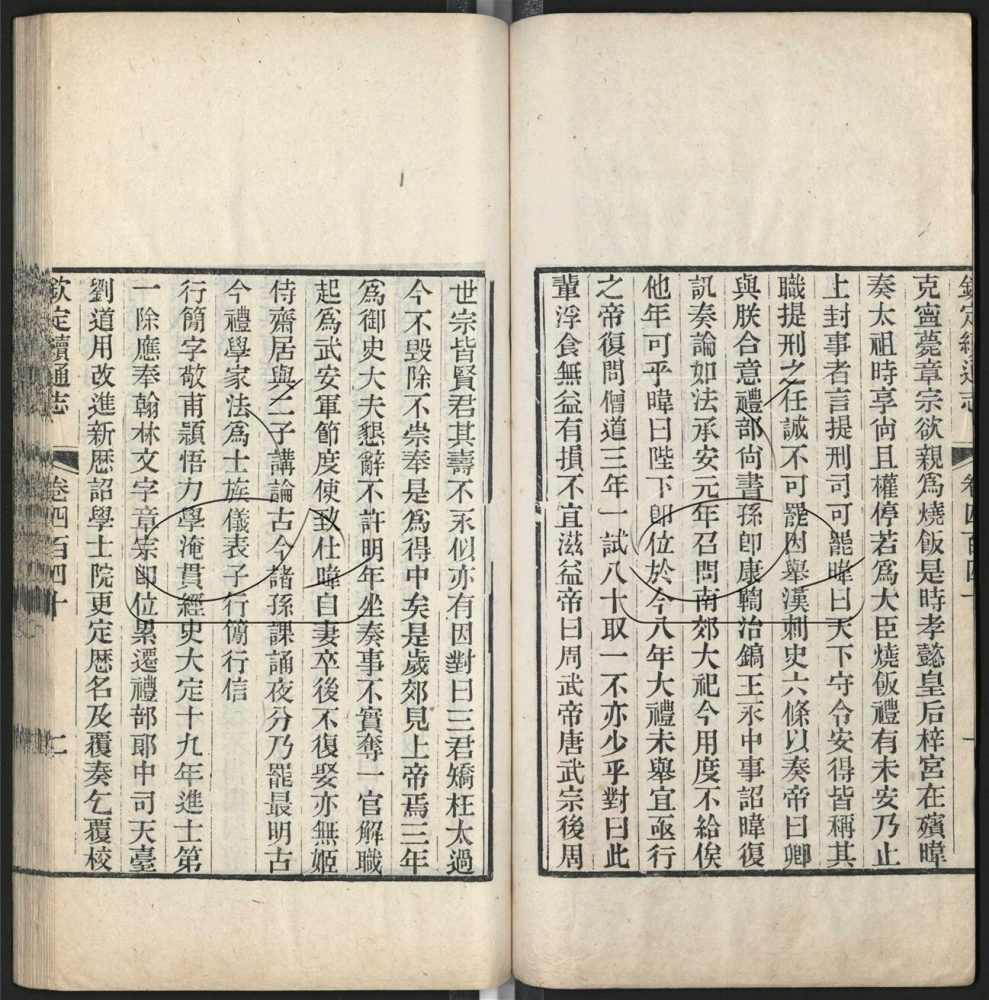 欽定續通志　卷四百四十　一
克寧薨章宗欲親爲燒飯是時孝懿皇后梓宮在殯暐
奏太祖時享尙且權停若爲大臣燒飯禮有未安乃止
上封事者言提刑司可罷暐曰天下守令安得皆稱其
職提刑之任誠不可罷因舉漢刺史六條以奏帝曰卿
與朕合意禮部尙書孫卽康鞫治鎬王永中事詔暐復
訊奏論如法承安元年召問南郊大祀今用度不給俟
他年可乎暐曰陛下卽位於今八年大禮未舉宜亟行
之帝復問僧道三年一試八十取一不亦少乎對曰此
輩浮食無益有損不宜滋益帝曰周武帝唐武宗後周
世宗皆賢君其壽不永似亦有因對曰三君矯枉太過
今不毀除不崇奉是爲得中矣是歲郊見上帝焉三年
爲御史大夫懇辭不許明年坐奏事不實奪一官解職
起爲武安軍節度使致仕暐自妻卒後不復娶亦無姬
侍齋居與二子講論古今諸孫課誦夜分乃罷最明古
今禮學家法爲士族儀表子行簡行信
行簡字敬甫穎悟力學淹貫經史大定十九年進士第
一除應奉翰林文字章宗卽位累遷禮部郎中司天臺
劉道用改進新歷詔學士院更定歷名及覆奏乞覆校
欽定續通志　卷四百四十　二